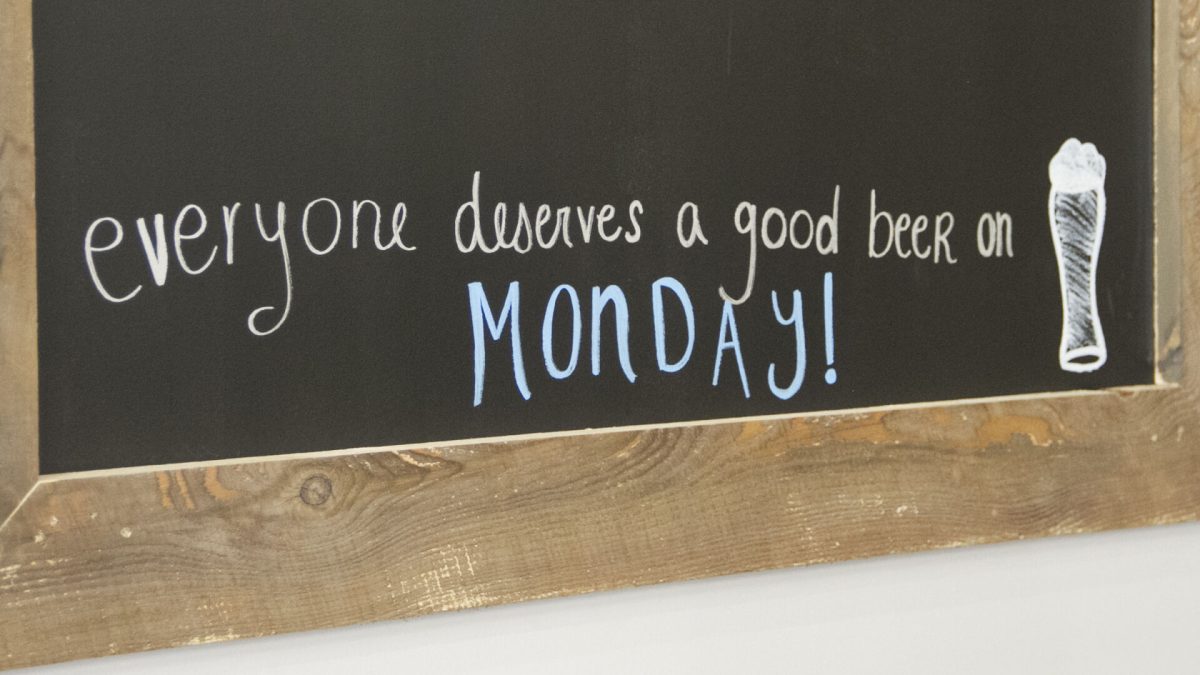 everyone deserves a good beer on
MONDAY!